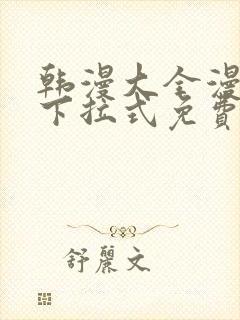 韩漫大全漫
下拉式免費
舒麗文